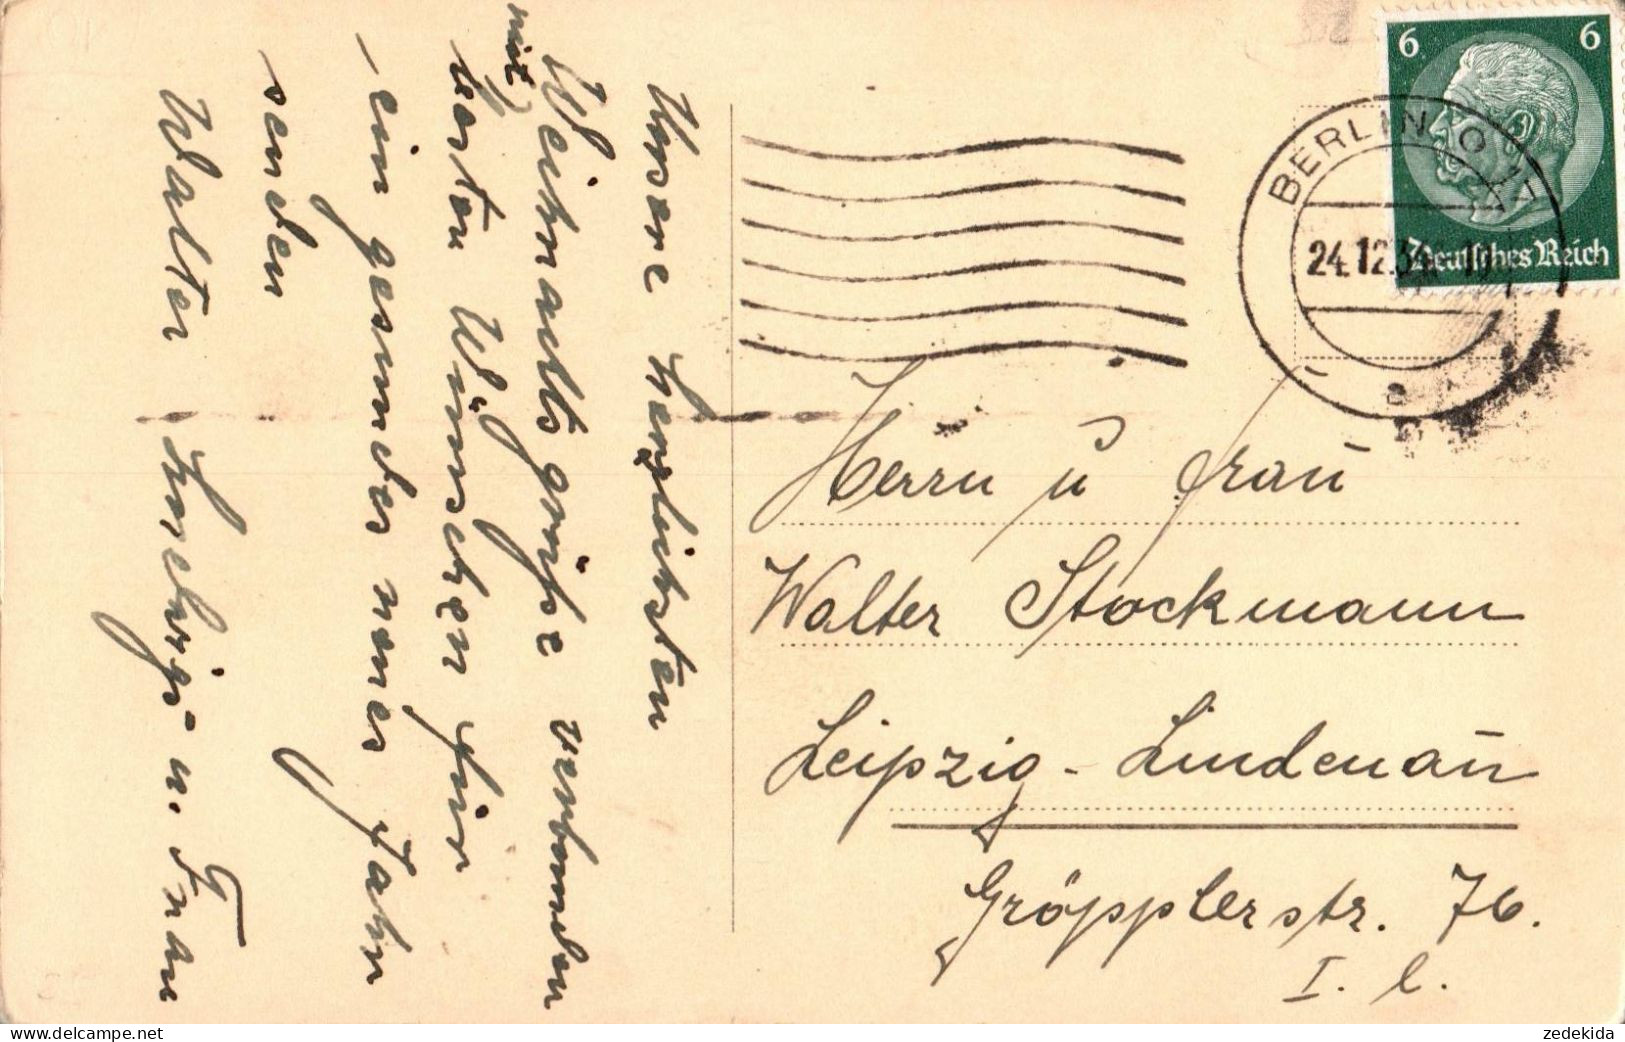 Unsere herzlichsten
Weihnachtsgrüße verbunden
mit
besten Wünschen für
ein gesundes neues Jahr
senden
Walter u. Frau
6 6
Deutsches Reich
BERLIN O 17
24.12.
a
Herrn u Frau
Walter Stockmann
Leipzig-Lindenau
Gröpplerstr. 76.
I. l.
zedekida